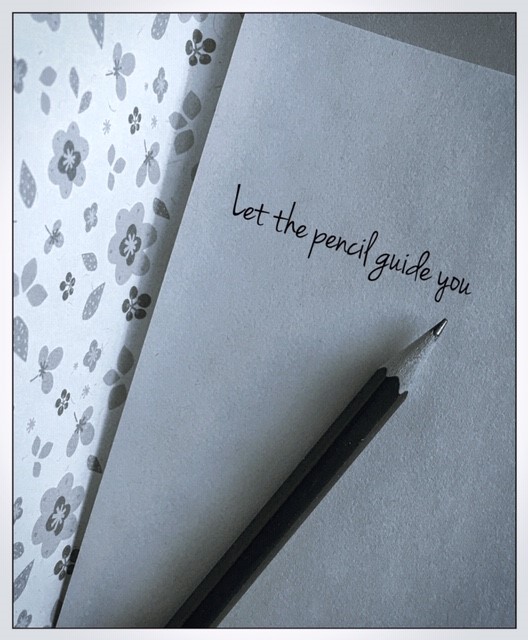 Let the pencil guide you